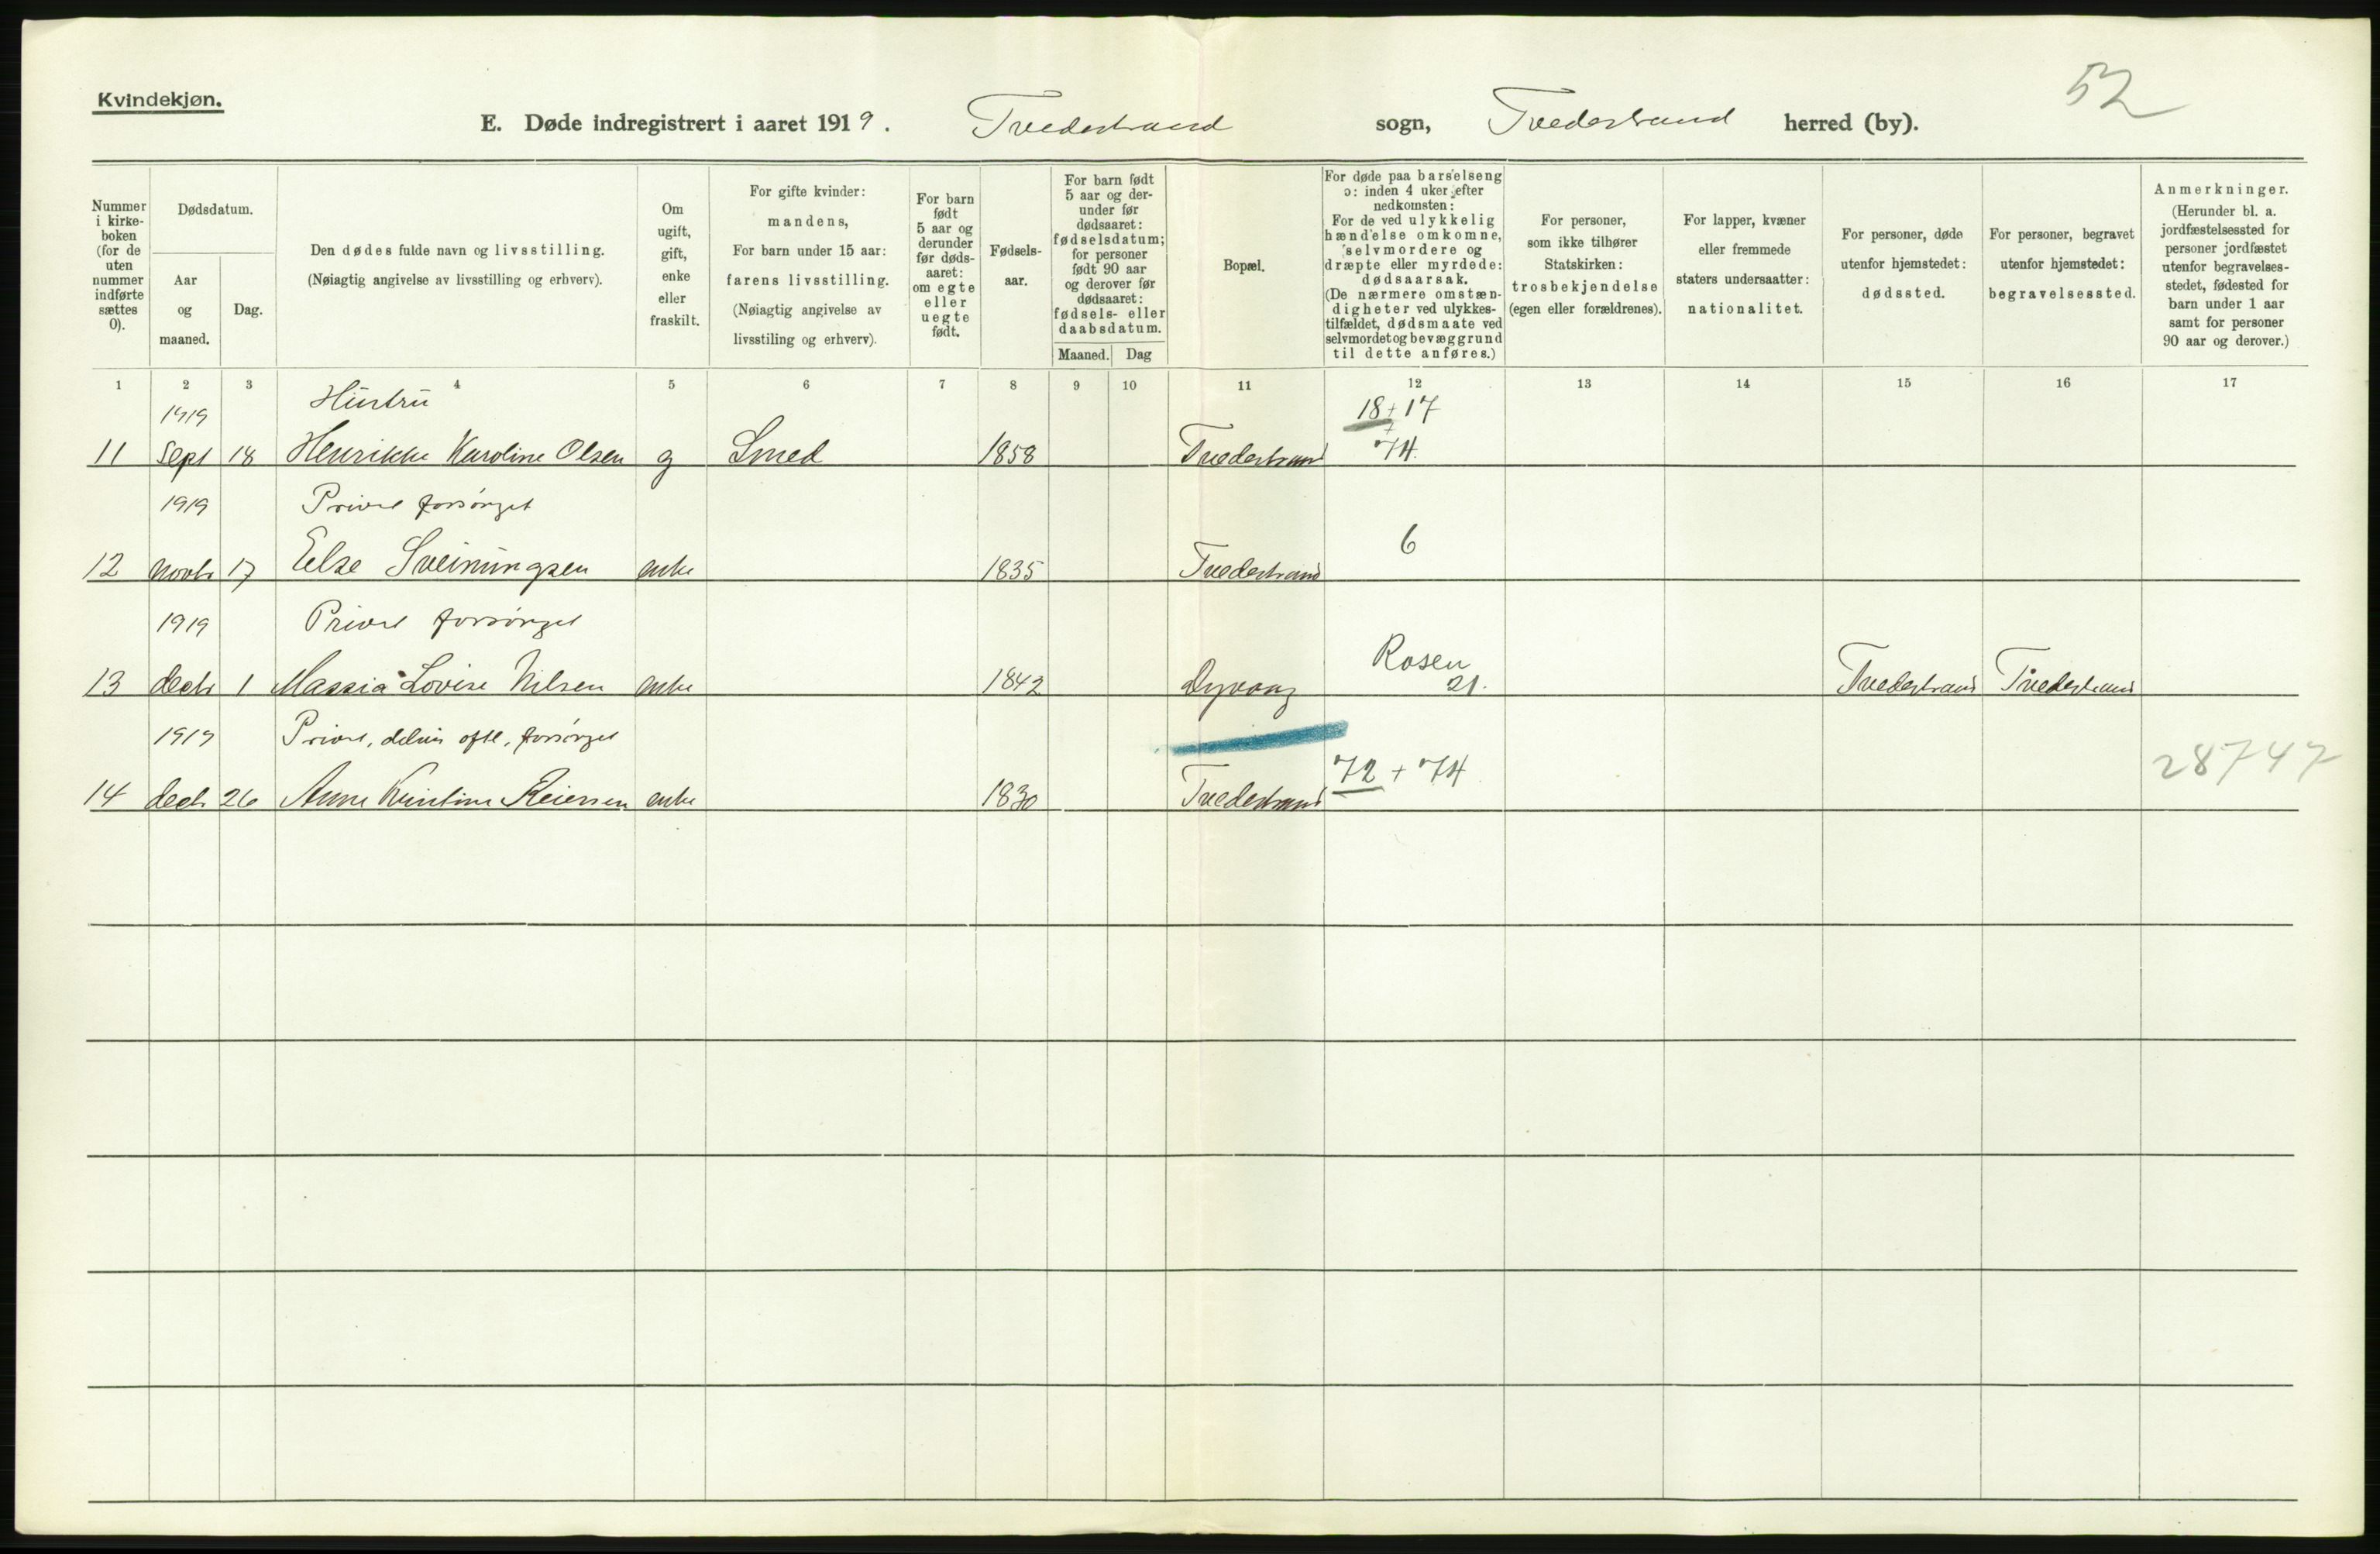 Kvindekjøn.
52
E. Døde indregistrert i aaret 1919. Tvedestrand sogn, Tvedestrand herred (by).
Nummer i kirke- boken (for de uten nummer indførte sættes 0).
Dødsdatum.
Aar og maaned.
Dag.
Den dødes fulde navn og livsstilling.
(Nøiagtig angivelse av livsstilling og erhverv).
Om ugift, gift, enke eller fraskilt.
For gifte kvinder: mandens,
For barn under 15 aar: farens livsstilling.
(Nøiagtig angivelse av livsstiling og erhverv).
For barn født 5 aar og derunder før døds- aaret: om egte eller uegte født.
Fødsels- aar.
For barn født 5 aar og der- under før dødsaaret: fødselsdatum; for personer født 90 aar og derover før dødsaaret: fødsels- eller daabsdatum.
Maaned. Dag
Bopæl.
For døde paa barselseng ɔ: inden 4 uker efter nedkomsten:
For de ved ulykkelig hændelse omkomne, selvmordere og dræpte eller myrdede: dødsaarsak.
(De nærmere omstæn- digheter ved ulykkes- tilfældet, dødsmaate ved selvmordet og bevæggrund til dette anføres.)
For personer, som ikke tilhører Statskirken: trosbekjendelse (egen eller forældrenes).
For lapper, kvæner eller fremmede staters undersaatter: nationalitet.
For personer, døde utenfor hjemstedet: dødssted.
For personer, begravet utenfor hjemstedet: begravelsessted.
Anmerkninger.
(Herunder bl. a. jordfæstelsessted for personer jordfæstet utenfor begravelses- stedet, fødested for barn under 1 aar samt for personer 90 aar og derover.)
1 2 3 4 5 6 7 8 9 10 11 12 13 14 15 16 17
1919 Hustru 18+17
11 Sept 18 Henrikke Karoline Olsen g Smed 1858 Tvedestrand + 74.
1919 Privat forsørget
12 Novbr 17 Else Sveinungsen enke 1835 Tvedestrand 6
1919 Privat forsørget
13 decbr 1 Massia Lovise Nilsen enke 1842 Dyvaag Rosen 21. Tvedestrand Tvedestrand
1919 Privat, delvis offtl. forsørget
14 decbr 26 Anne Kristine Reiersen enke 1830 Tvedestrand 72 + 74 28747